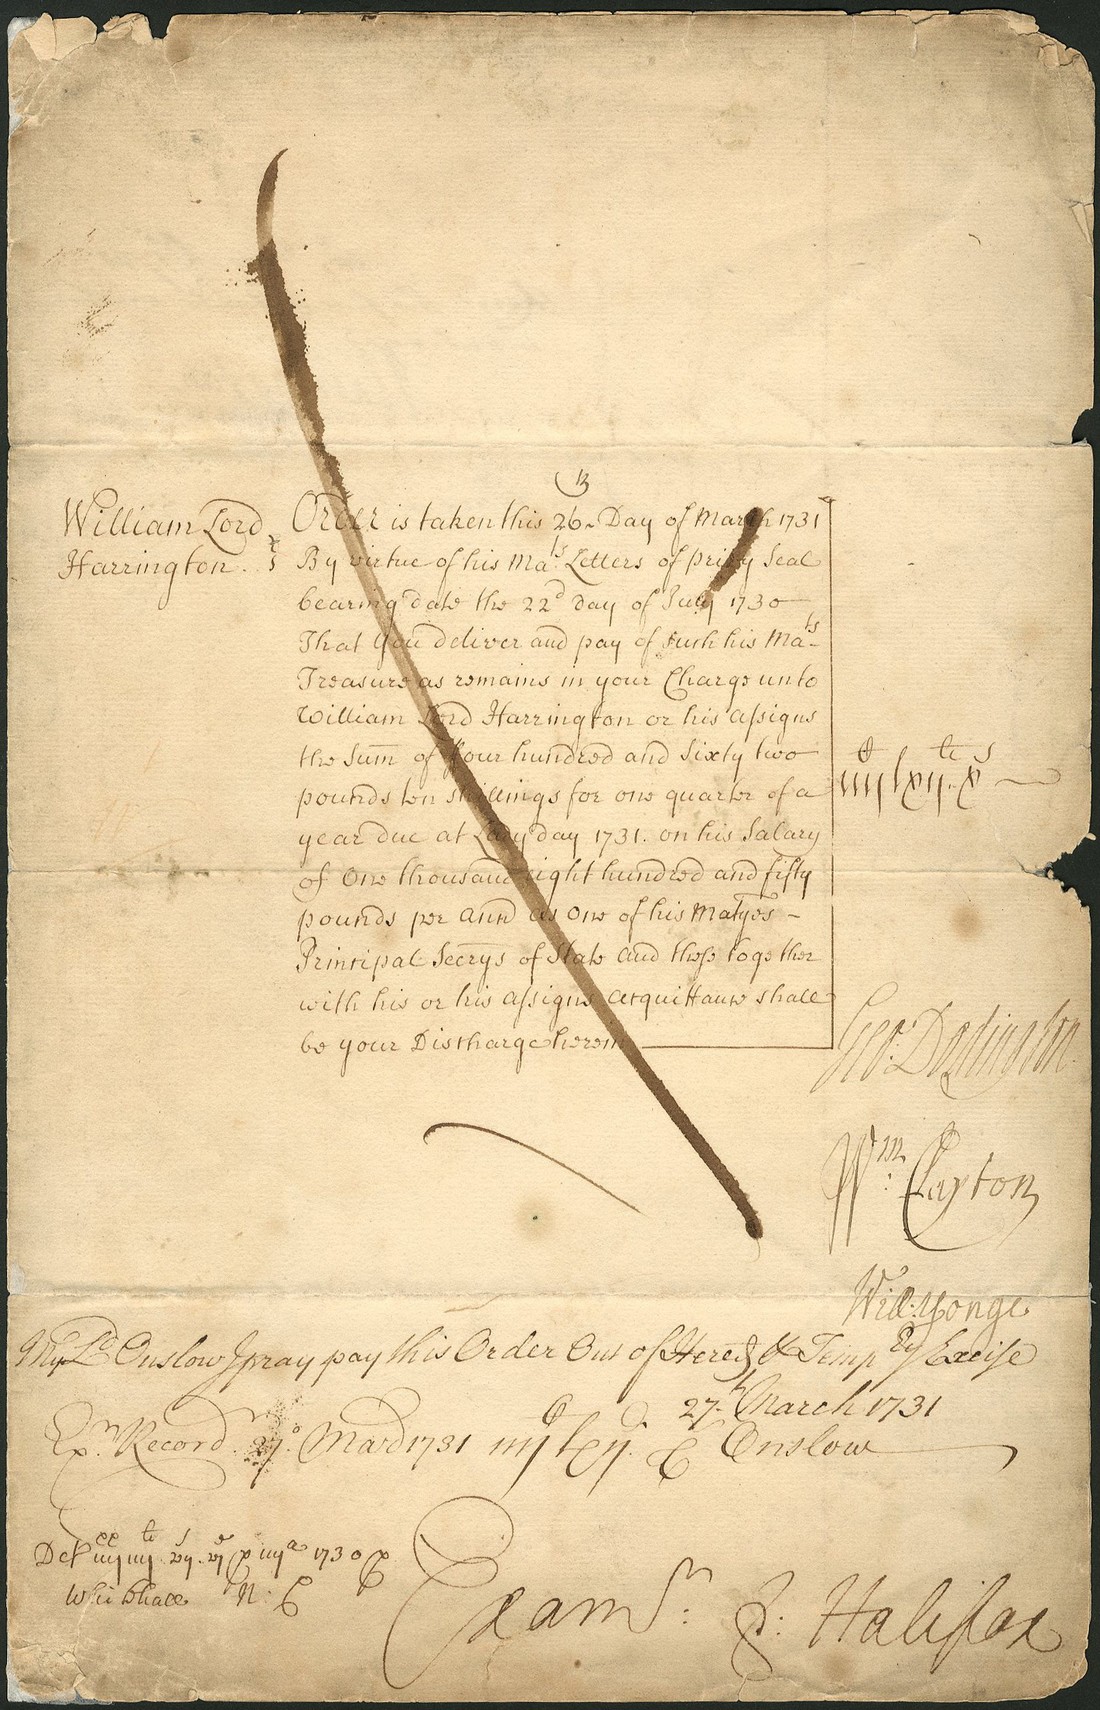 William Lord
Harrington.
Order is taken this 26 Day of March 1731
By virtue of his Ma.ts Letters of privy Seal
bearing date the 22d day of July 1730
That you deliver and pay of such his Ma.ts
Treasure as remains in your Charge unto
William Lord Harrington or his assigns
the sum of four hundred and sixty two
pounds ten shillings for one quarter of a
year due at Lady day 1731. on his Salary
of One thousand eight hundred and fifty
pounds per ann as one of his Matyes
Principal Secrys of State and these together
with his or his assigns acquittance shall
be your Discharge herein
Geo: Dodington
Wm: Clayton
Will: Yonge
My Ld Onslow I pray pay this Order Out of Heredy & Tempry Excise
27th March 1731
Exr Record. 27o March 1731
Onslow
1730
Whitehall
Examr: Halifax